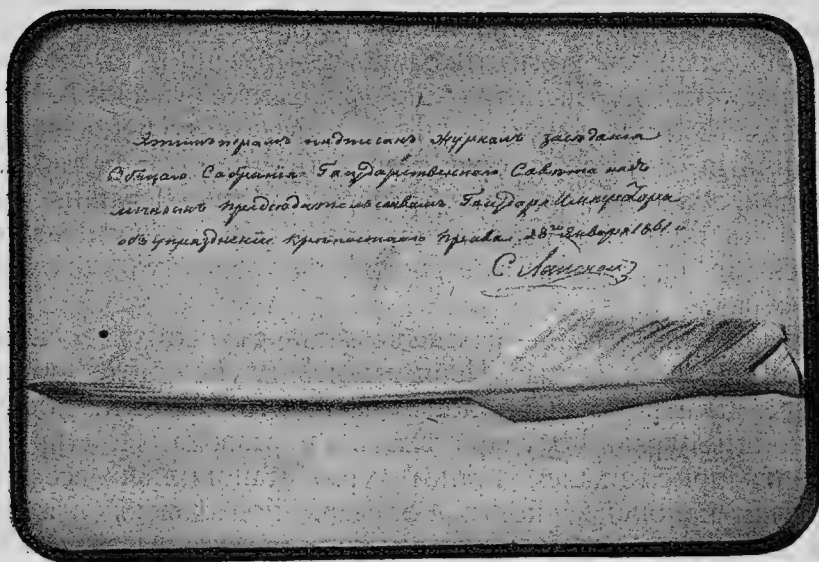 Этимъ перомъ подписанъ Журналъ заседанія
Общаго Собранія Государственнаго Совѣта подъ
личнымъ предсѣдательствомъ Государя Императора
объ упраздненіи крѣпостнаго права. 28го Января 1861 г.
С. Ланской